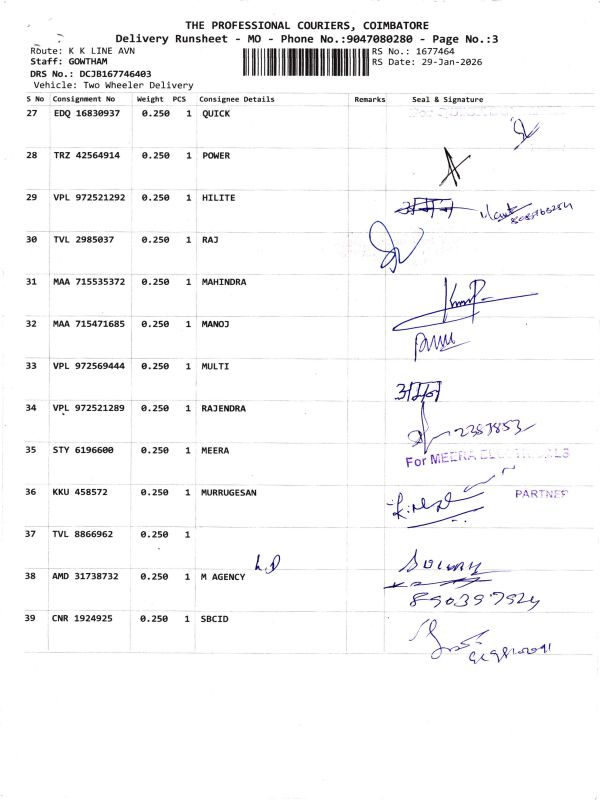 THE PROFESSIONAL COURIERS, COIMBATORE
Delivery Runsheet - MO - Phone No.:9047080280 - Page No.:3
Route: K K LINE AVN RS No.: 1677464
Staff: GOWTHAM RS Date: 29-Jan-2026
DRS No.: DCJB167746403
Vehicle: Two Wheeler Delivery
S No Consignment No Weight PCS Consignee Details Remarks Seal & Signature
27 EDQ 16830937 0.250 1 QUICK
28 TRZ 42564914 0.250 1 POWER
29 VPL 972521292 0.250 1 HILITE
30 TVL 2985037 0.250 1 RAJ
31 MAA 715535372 0.250 1 MAHINDRA
32 MAA 715471685 0.250 1 MANOJ
33 VPL 972569444 0.250 1 MULTI
34 VPL 972521289 0.250 1 RAJENDRA
35 STY 6196600 0.250 1 MEERA
For MEERA ELECTRICALS
36 KKU 458572 0.250 1 MURRUGESAN
PARTNER
37 TVL 8866962 0.250 1
38 AMD 31738732 0.250 1 M AGENCY
39 CNR 1924925 0.250 1 SBCID